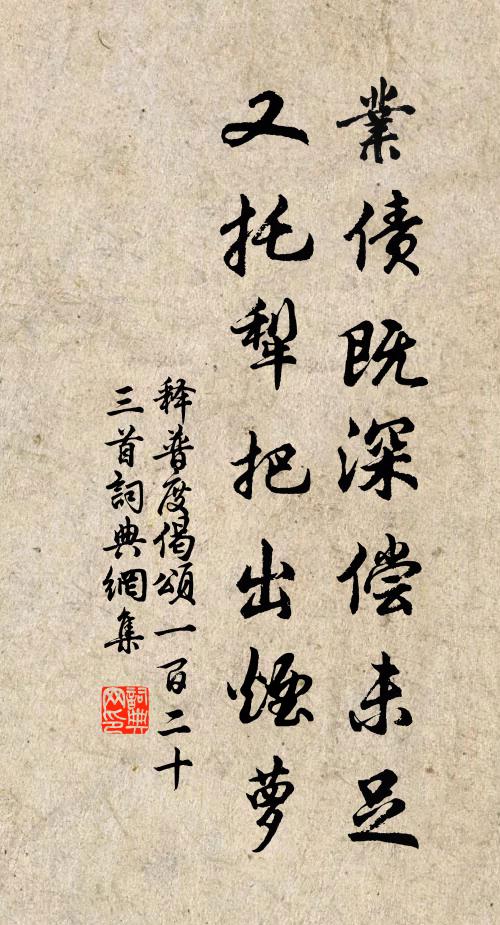 業債既深偿未足
又托犁把出煙萝
释普度偈頌一百二十
三首詞典網集
詞典
网印